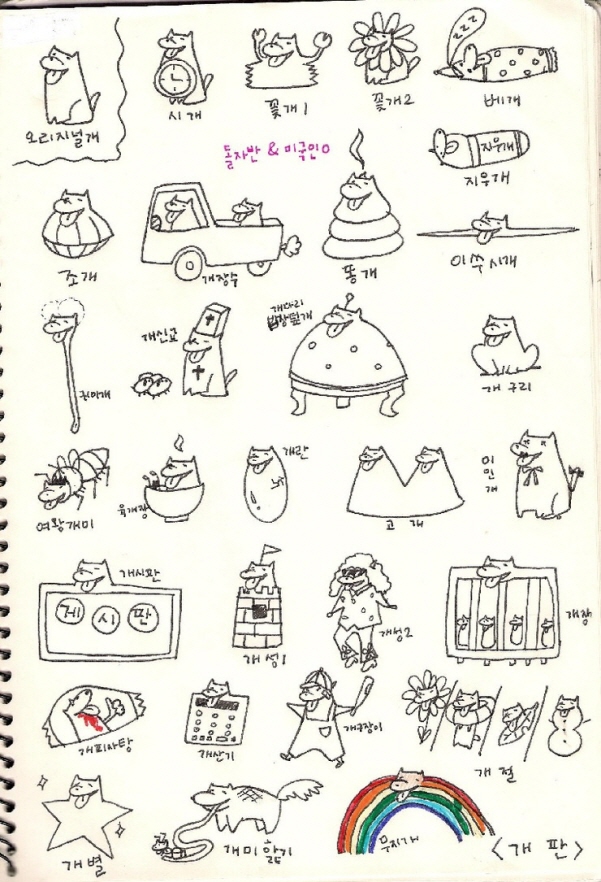 오리지널개
시개
꽃개1
꽃개2
zzz
베개
돌자반 & 미국민O
지우개
지우개
조개
개장수
똥개
이쑤시개
귀이개
개신교
개다리
밥상덮개
개구리
여왕개미
육개장
개란
고개
이민개
게시판
개시판
개성1
개성2
개장
개피사탕
개산기
개구장이
개절
개별
개미핥기
무지개
<개판>